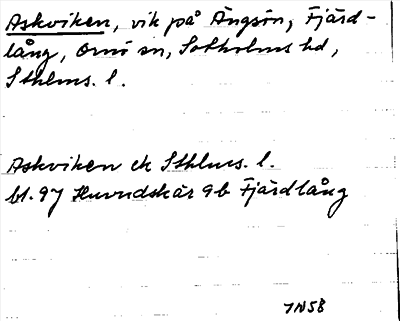 Askviken, vik på Ängsön, Fjärd-
lång, Ornö sn, Sotholms hd,
Sthlms. l.
Askviken ek Sthlms. l.
bl. 97 Huvudskär 9b Fjärdlång
JNSB